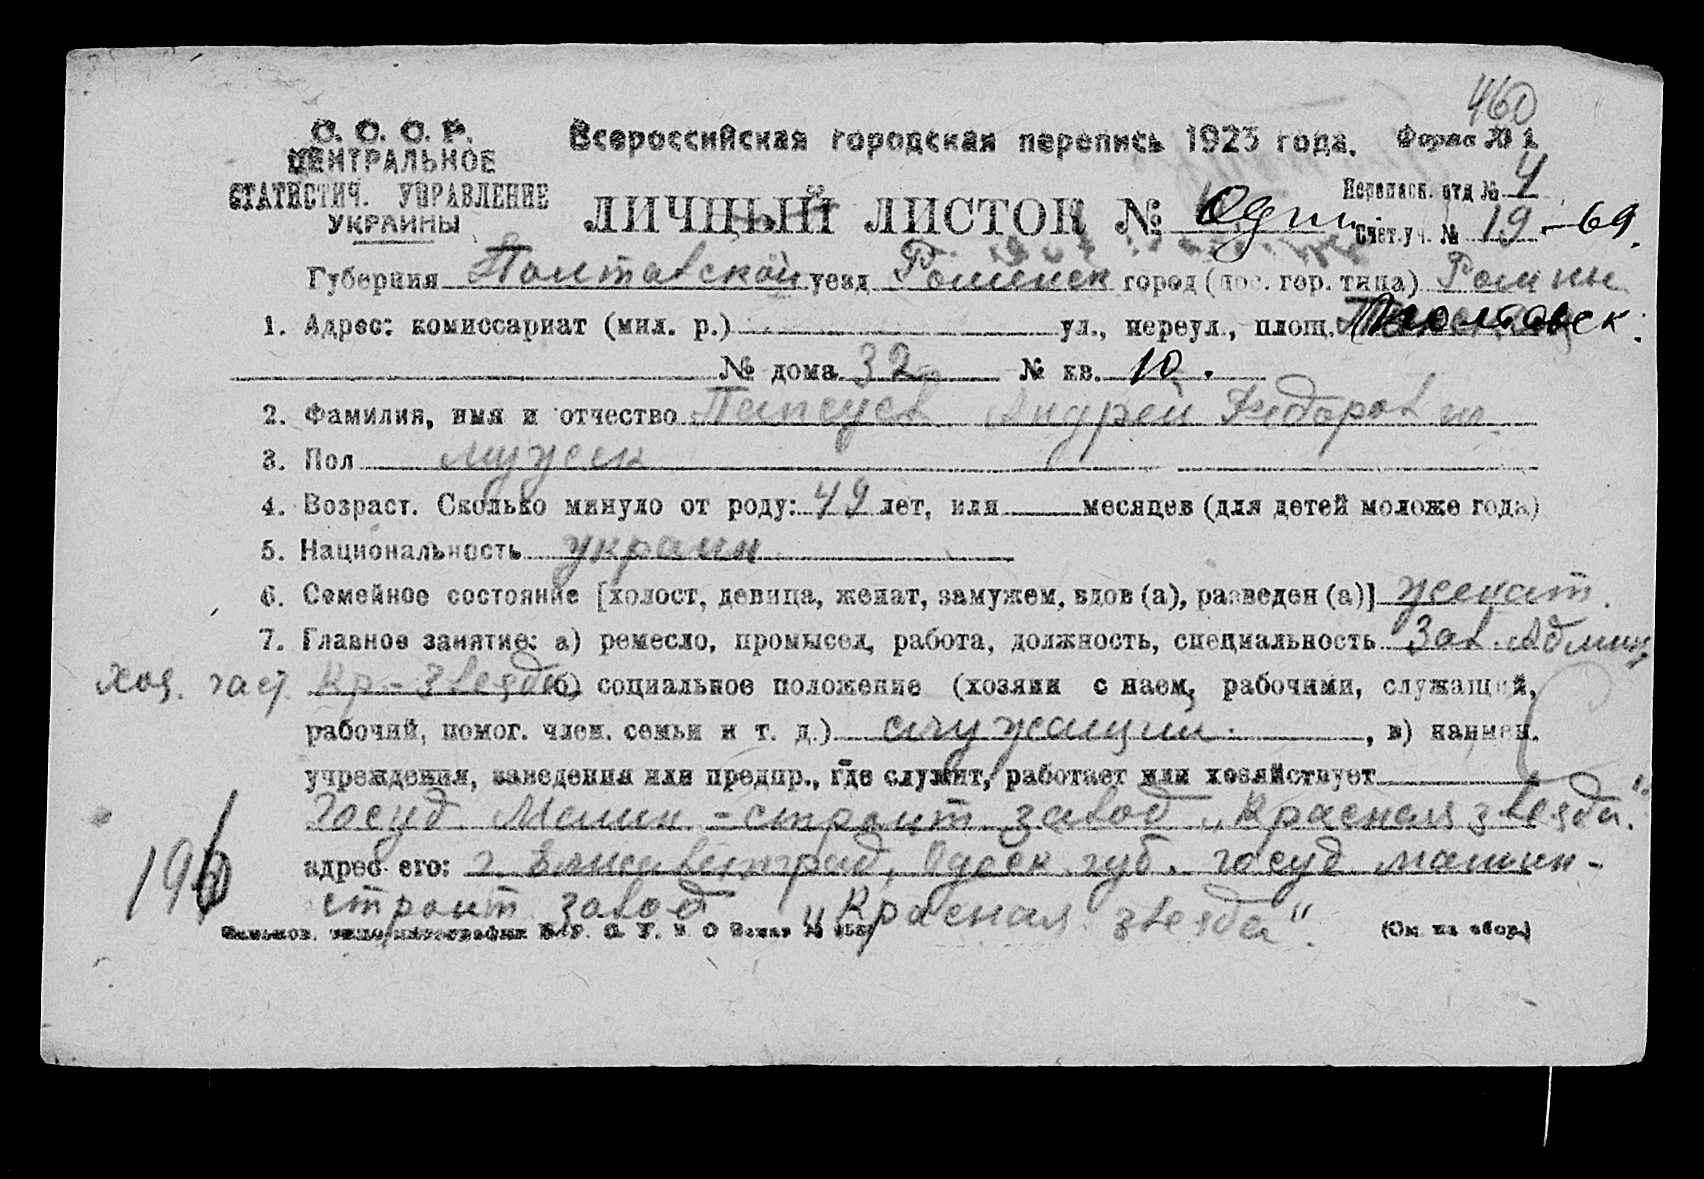 460
С. С. С. Р.
ЦЕНТРАЛЬНОЕ
СТАТИСТИЧ. УПРАВЛЕНИЕ
УКРАИНЫ
Всероссийская городская перепись 1923 года. Форма № 1.
Переписн. отд № 4
ЛИЧНЫЙ ЛИСТОК № Один Счет. уч. № 19 - 69.
Губерния Полтавской уезд Роменск город (пос. гор. типа) Ромны
1. Адрес: комиссариат (мил. р.) ул., переул., площ. Полтавск.
№ дома 32 № кв. 10.
2. Фамилия, имя и отчество Андрей Федоров
3. Пол мужск
4. Возраст. Сколько минуло от роду: 49 лет, или месяцев (для детей моложе года)
5. Национальность украин
6. Семейное состояние [холост, девица, женат, замужем, вдов (а), разведен (а)] женат.
7. Главное занятие: а) ремесло, промысел, работа, должность, специальность Зав. Админ
хоз. част. Кр-Звезда б) социальное положение (хозяин с наем, рабочими, служащий,
рабочий, помог. член. семьи и т. д.) служащий, в) наимен.
учреждения, заведения или предпр., где служит, работает или хозяйствует
Госуд. Машин-строит завод „Красная звезда".
адрес его: г. Елисаветград, Одесск губ. госуд машин-
строит завод „Красная звезда".
196
(См на обор.)